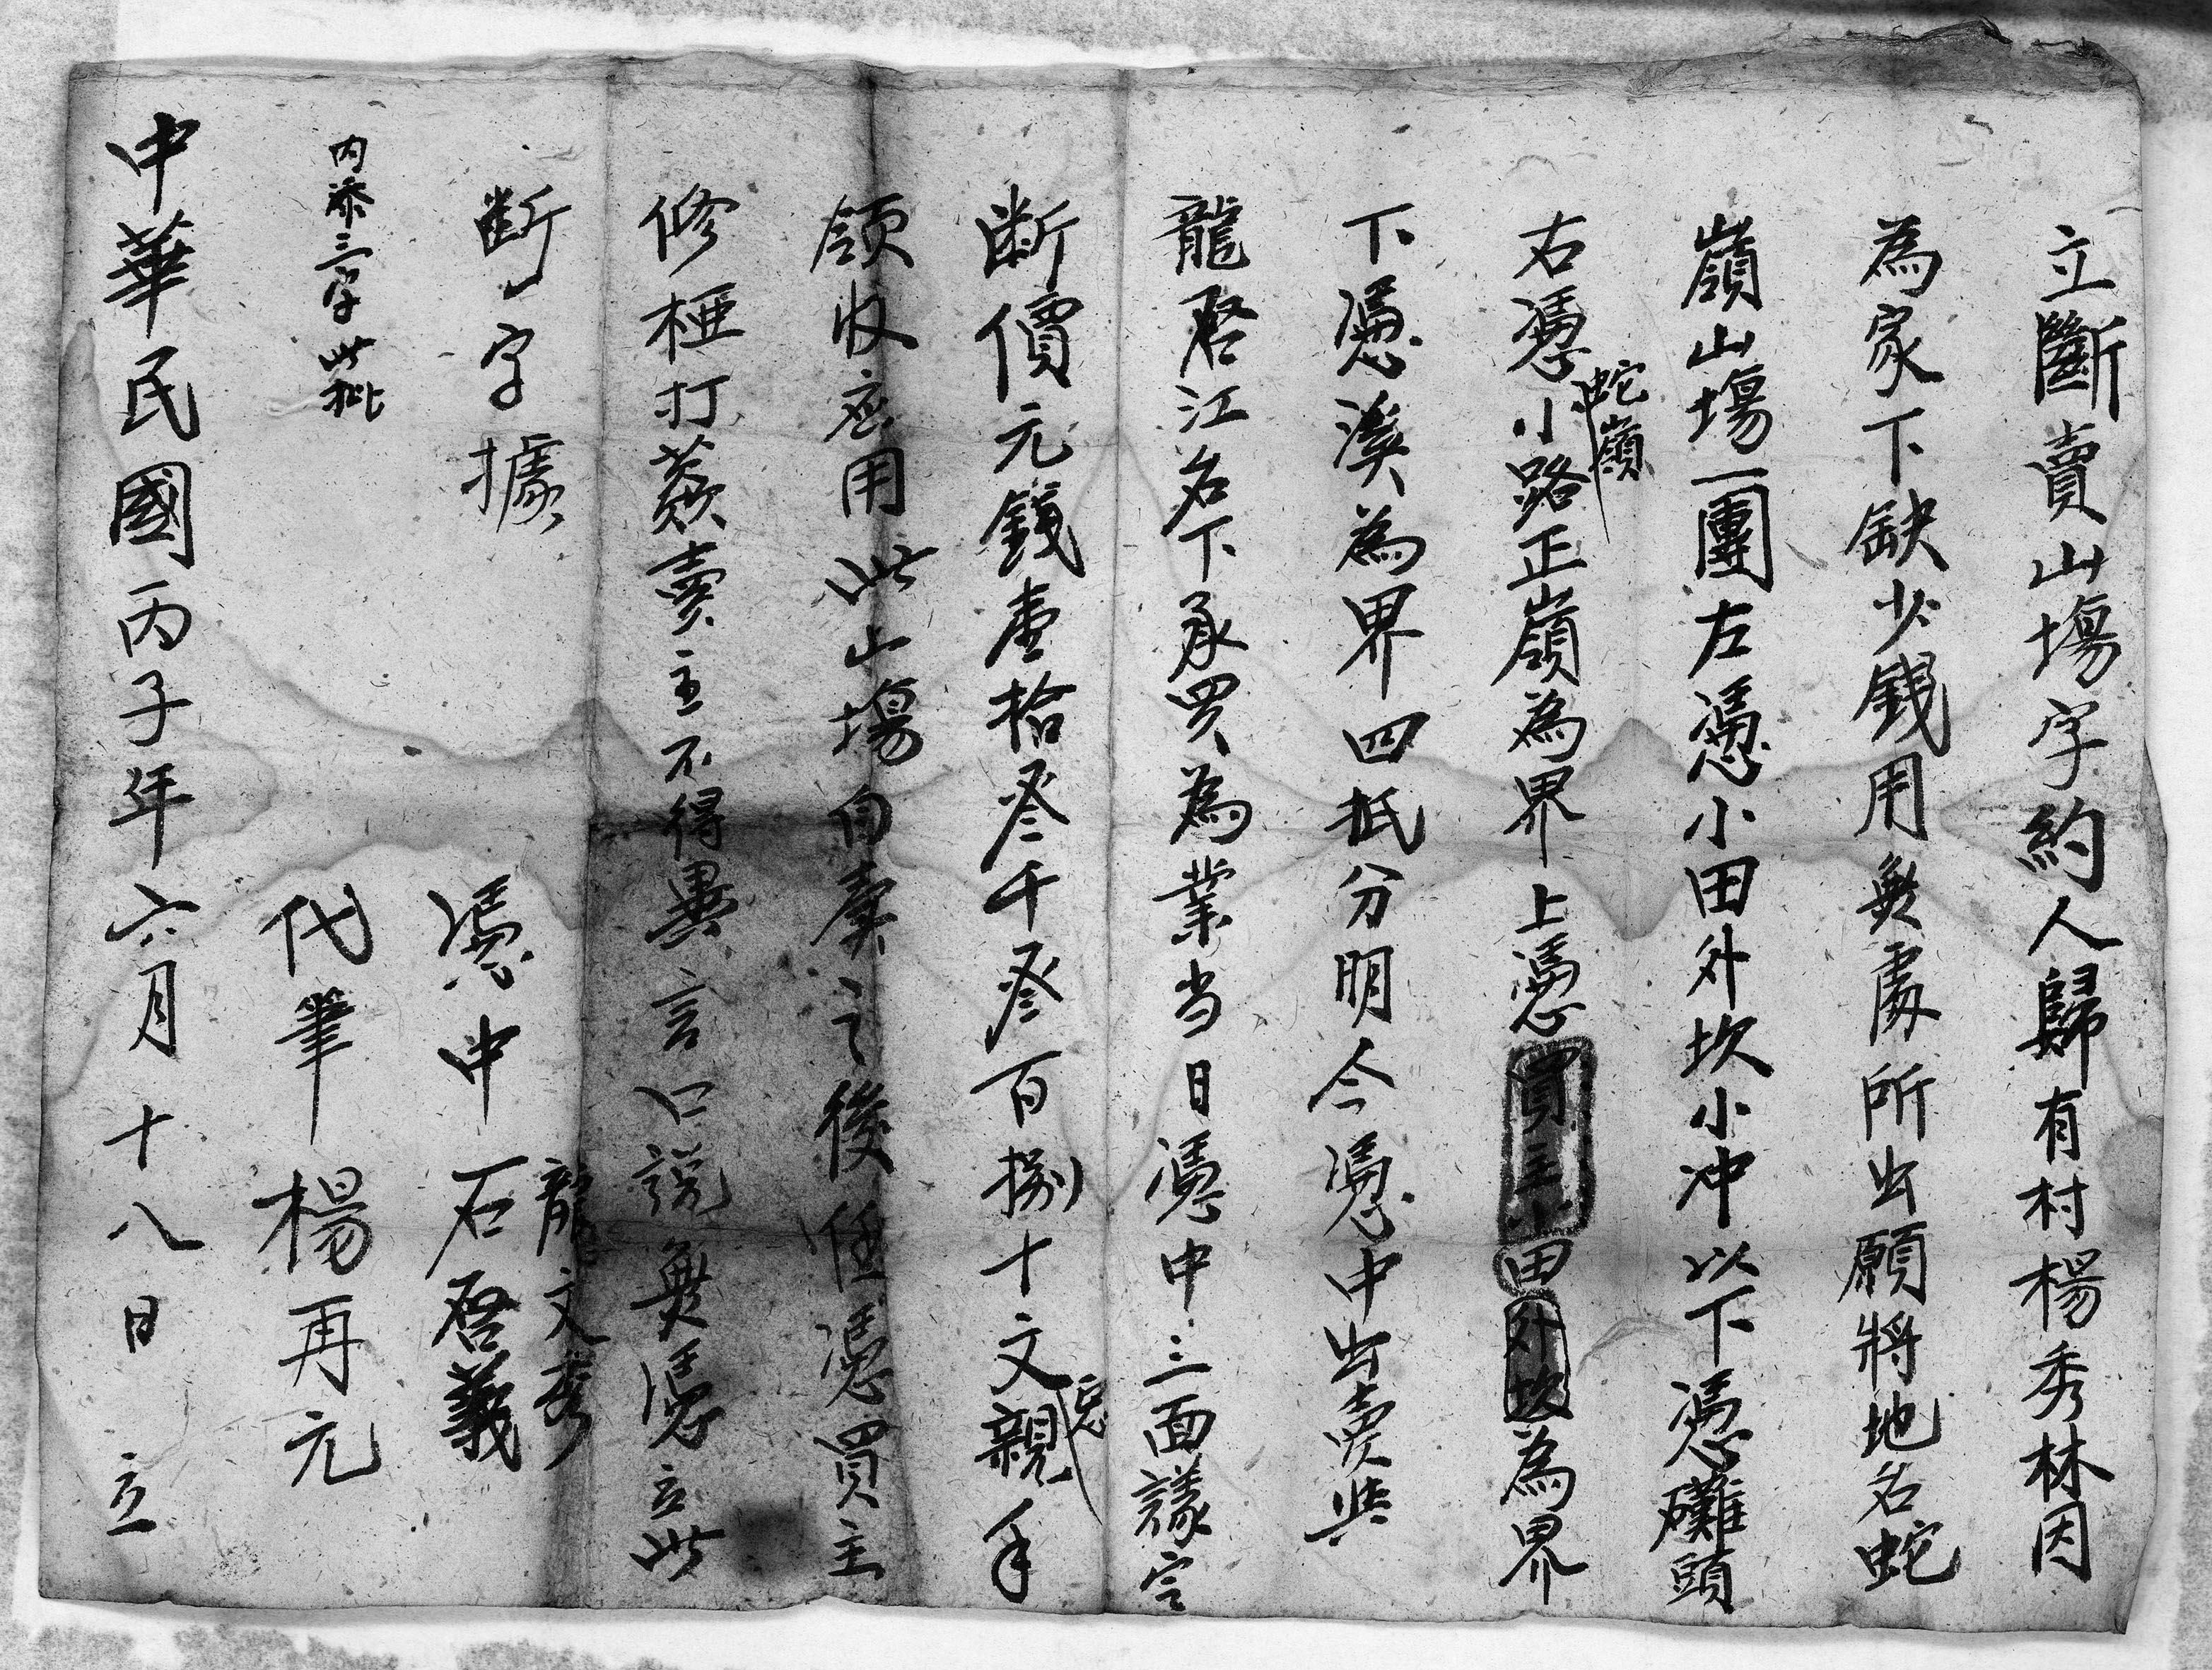 立斷賣山塲字約人歸有村楊秀林因
為家下缺少錢用無處所出願將地名蛇
嶺山塲一團左憑小田外坎小冲以下憑灘頭
蛇嶺
右憑小路正嶺為界上憑買主小田外坎為界
下憑溪為界四抵分明今憑中出賣與
龍啓江名下承買為業当日憑中三面議定
断價元錢壹拾叄千叄百捌十文親手
領收应用此山塲自賣之後任憑買主
修桠打蔸賣主不得異言口說無憑立此
断字據
憑中 龍文秀 石啓義
内添三字此批
代筆 楊再元
中華民國丙子年六月十八日 立